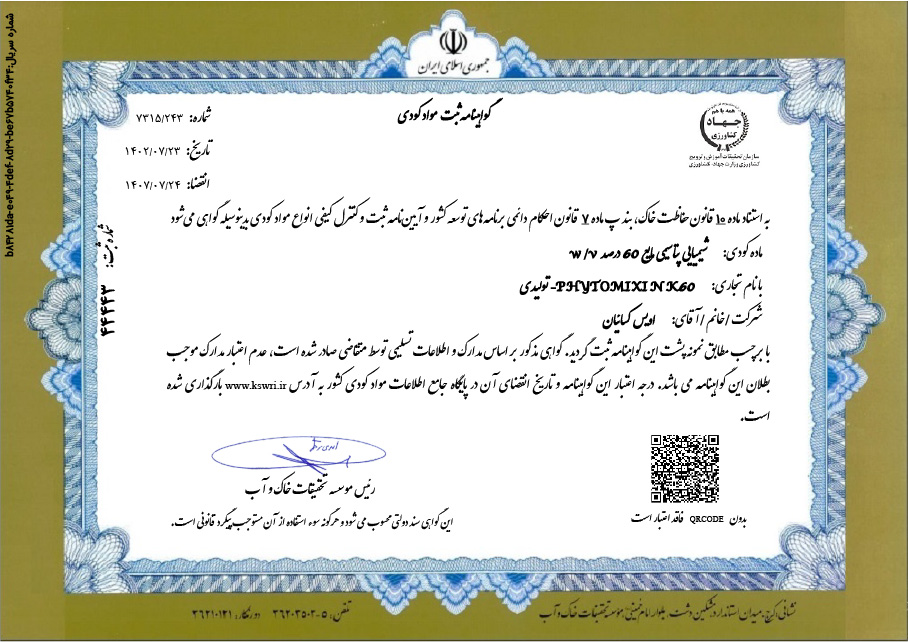 جمهوری اسلامی ایران
گواهینامه ثبت مواد کودی
شماره: ۷۳۱۵/۲۴۳
تاریخ: ۱۴۰۲/۰۷/۲۳
انقضا: ۱۴۰۷/۰۷/۲۴
همه با هم
جهاد
کشاورزی
سازمان تحقیقات، آموزش و ترویج
کشاورزی وزارت جهاد کشاورزی
به استناد ماده ۱۰ قانون حفاظت خاک، بند پ ماده ۷ قانون احکام دائمی برنامه های توسعه کشور و آیین نامه ثبت و کنترل کیفی انواع مواد کودی بدینوسیله گواهی می شود
ماده کودی: شیمیایی پتاسیمی مایع 60 درصد w/v
با نام تجاری: PHYTOMIXIN K60- تولیدی
شرکت / خانم / آقای: اویس کسائیان
با برچسب مطابق نمونه پشت این گواهینامه ثبت گردید. گواهی مذکور بر اساس مدارک و اطلاعات تسلیمی توسط متقاضی صادر شده است، عدم اعتبار مدارک موجب
بطلان این گواهینامه می باشد. درجه اعتبار این گواهینامه و تاریخ انقضای آن در پایگاه جامع اطلاعات مواد کودی کشور به آدرس www.kswri.ir بارگذاری شده
است.
رئیس موسسه تحقیقات خاک و آب
این گواهی سند دولتی محسوب می شود و هرگونه سوء استفاده از آن مستوجب پیگرد قانونی است.
بدون QRCODE فاقد اعتبار است
شماره ثبت: ۴۴۴۴۳
نشانی: کرج، میدان استاندارد، مشکین دشت، بلوار امام خمینی، موسسه تحقیقات خاک و آب
تلفن: ۵-۳۶۲۰۳۵۰۳ دورنگار: ۳۶۲۱۰۱۲۱